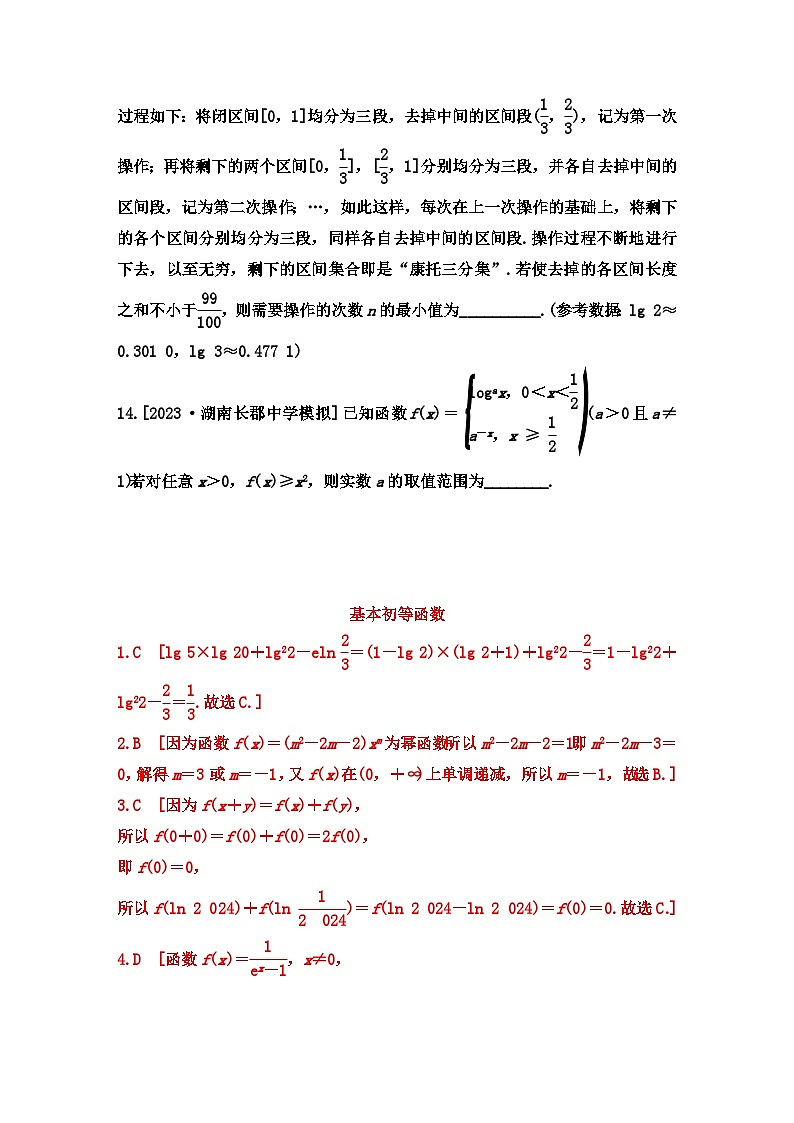 过程如下：将闭区间[0，1]均分为三段，去掉中间的区间段(1/3，2/3)，记为第一次
操作；再将剩下的两个区间[0，1/3]，[2/3，1]分别均分为三段，并各自去掉中间的
区间段，记为第二次操作；…，如此这样，每次在上一次操作的基础上，将剩下
的各个区间分别均分为三段，同样各自去掉中间的区间段.操作过程不断地进行
下去，以至无穷，剩下的区间集合即是“康托三分集”.若使去掉的各区间长度
之和不小于99/100，则需要操作的次数n的最小值为__________.(参考数据：lg 2≈
0.301 0，lg 3≈0.477 1)
14.[2023·湖南长郡中学模拟]已知函数f(x)＝{logₐx，0＜x＜1/2
a⁻ˣ，x≥1/2 (a＞0且a≠
1)若对任意x＞0，f(x)≥x²，则实数a的取值范围为________.
基本初等函数
1.C [lg 5×lg 20＋lg²2－eln 2/3＝(1－lg 2)×(lg 2＋1)＋lg²2－2/3＝1－lg²2＋
lg²2－2/3＝1/3.故选C.]
2.B [因为函数f(x)＝(m²－2m－2)xᵐ为幂函数所以m²－2m－2＝1即m²－2m－3＝
0，解得m＝3或m＝－1，又f(x)在(0，＋∞)上单调递减，所以m＝－1，故选B.]
3.C [因为f(x＋y)＝f(x)＋f(y)，
所以f(0＋0)＝f(0)＋f(0)＝2f(0)，
即f(0)＝0，
所以f(ln 2 024)＋f(ln 1/2 024)＝f(ln 2 024－ln 2 024)＝f(0)＝0.故选C.]
4.D [函数f(x)＝1/(eˣ－1)，x≠0，